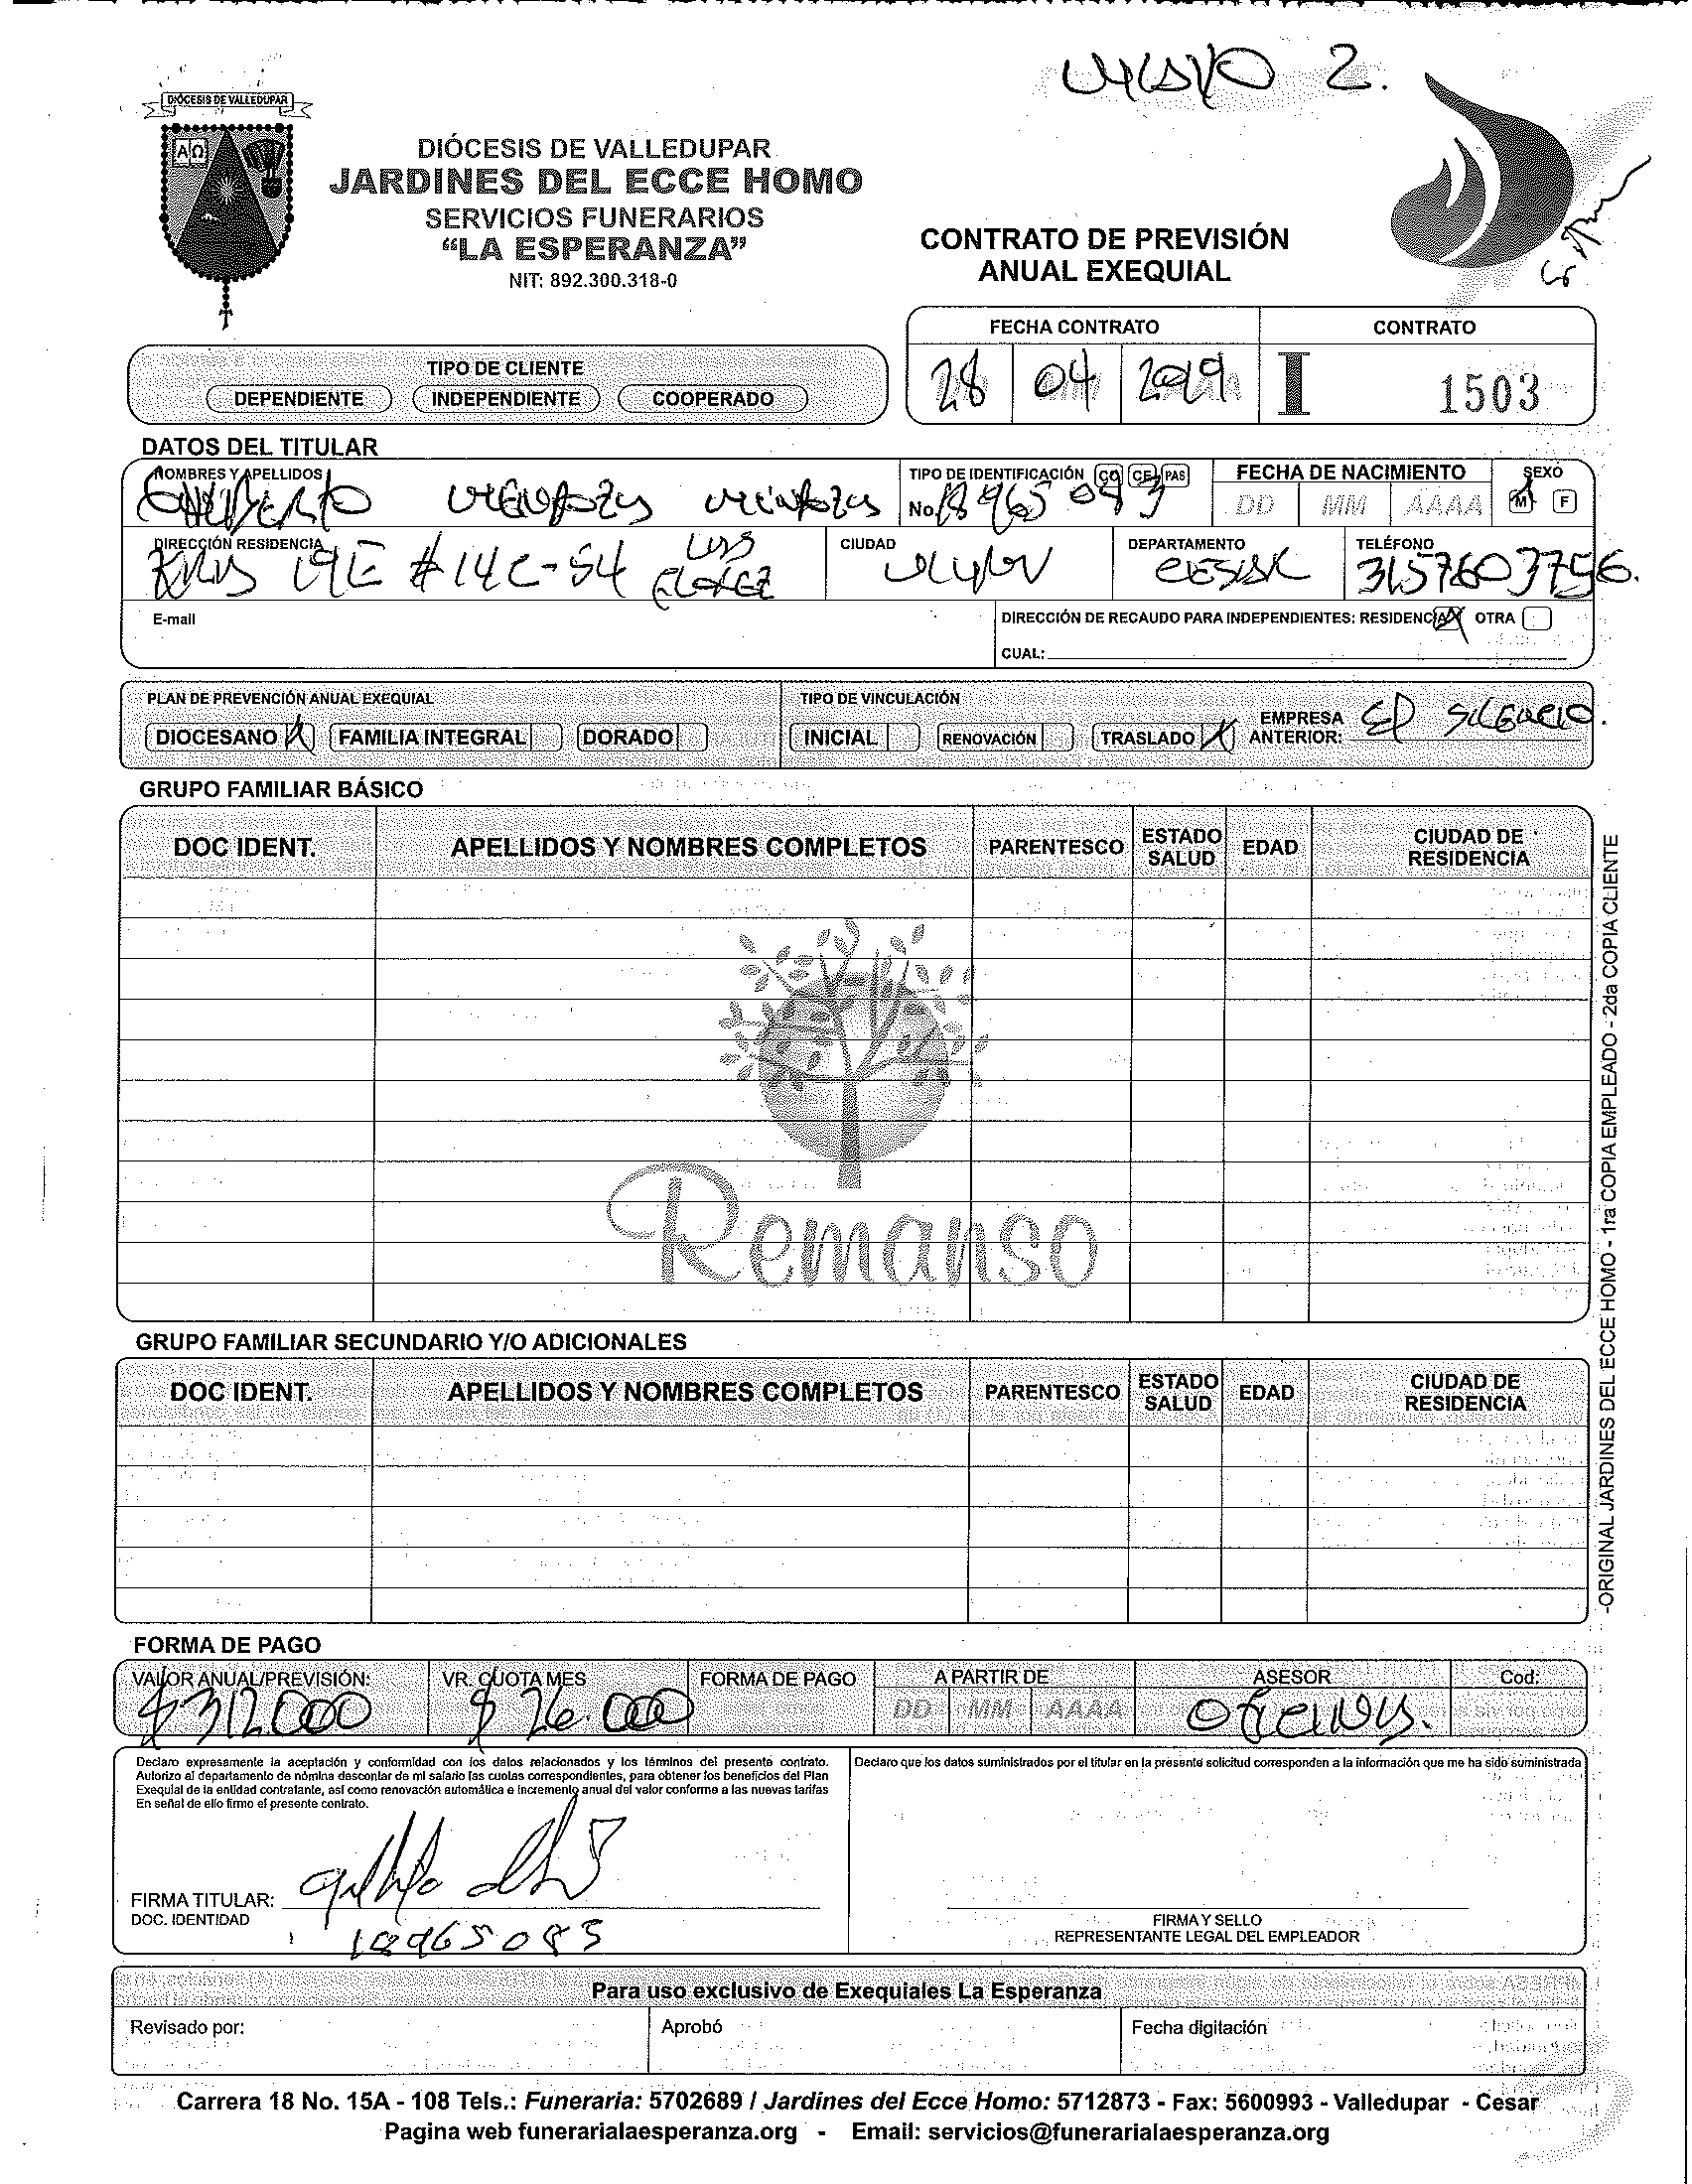 2.
DIÓCESIS DE VALLEDUPAR
DIÓCESIS DE VALLEDUPAR
JARDINES DEL ECCE HOMO
SERVICIOS FUNERARIOS
“LA ESPERANZA”
NIT: 892.300.318-0
ΑΩ
CONTRATO DE PREVISIÓN
ANUAL EXEQUIAL
FECHA CONTRATO
CONTRATO
28 04 2019
I 1503
TIPO DE CLIENTE
DEPENDIENTE INDEPENDIENTE COOPERADO
DATOS DEL TITULAR
NOMBRES Y APELLIDOS
TIPO DE IDENTIFICACIÓN CC CE PAS
No. 18965083
FECHA DE NACIMIENTO
DD MM AAAA
SEXO
M F
DIRECCIÓN RESIDENCIA
19E #14C-54
CIUDAD
DEPARTAMENTO
CESAR
TELÉFONO
3157603756.
E-mail
DIRECCIÓN DE RECAUDO PARA INDEPENDIENTES: RESIDENCIA X OTRA
CUAL:
PLAN DE PREVENCIÓN ANUAL EXEQUIAL
DIOCESANO X FAMILIA INTEGRAL DORADO
TIPO DE VINCULACIÓN
INICIAL RENOVACIÓN TRASLADO X
EMPRESA ANTERIOR: El Silencio.
GRUPO FAMILIAR BÁSICO
DOC IDENT. APELLIDOS Y NOMBRES COMPLETOS PARENTESCO ESTADO SALUD EDAD CIUDAD DE RESIDENCIA
Remanso
GRUPO FAMILIAR SECUNDARIO Y/O ADICIONALES
DOC IDENT. APELLIDOS Y NOMBRES COMPLETOS PARENTESCO ESTADO SALUD EDAD CIUDAD DE RESIDENCIA
-ORIGINAL JARDINES DEL ECCE HOMO - 1ra COPIA EMPLEADO - 2da COPIA CLIENTE
FORMA DE PAGO
VALOR ANUAL/PREVISIÓN: VR. CUOTA MES FORMA DE PAGO A PARTIR DE ASESOR Cod:
$312.000 $26.000 DD MM AAAA Oficina.
Declaro expresamente la aceptación y conformidad con los datos relacionados y los términos del presente contrato.
Autorizo al departamento de nómina descontar de mi salario las cuotas correspondientes, para obtener los beneficios del Plan
Exequial de la entidad contratante, así como renovación automática e incremento anual del valor conforme a las nuevas tarifas
En señal de ello firmo el presente contrato.
Declaro que los datos suministrados por el titular en la presente solicitud corresponden a la información que me ha sido suministrada
FIRMA TITULAR:
DOC. IDENTIDAD
18965083
FIRMA Y SELLO
REPRESENTANTE LEGAL DEL EMPLEADOR
Para uso exclusivo de Exequiales La Esperanza
Revisado por: Aprobó Fecha digitación
Carrera 18 No. 15A - 108 Tels.: Funeraria: 5702689 / Jardines del Ecce Homo: 5712873 - Fax: 5600993 - Valledupar - Cesar
Pagina web funerarialaesperanza.org - Email: servicios@funerarialaesperanza.org